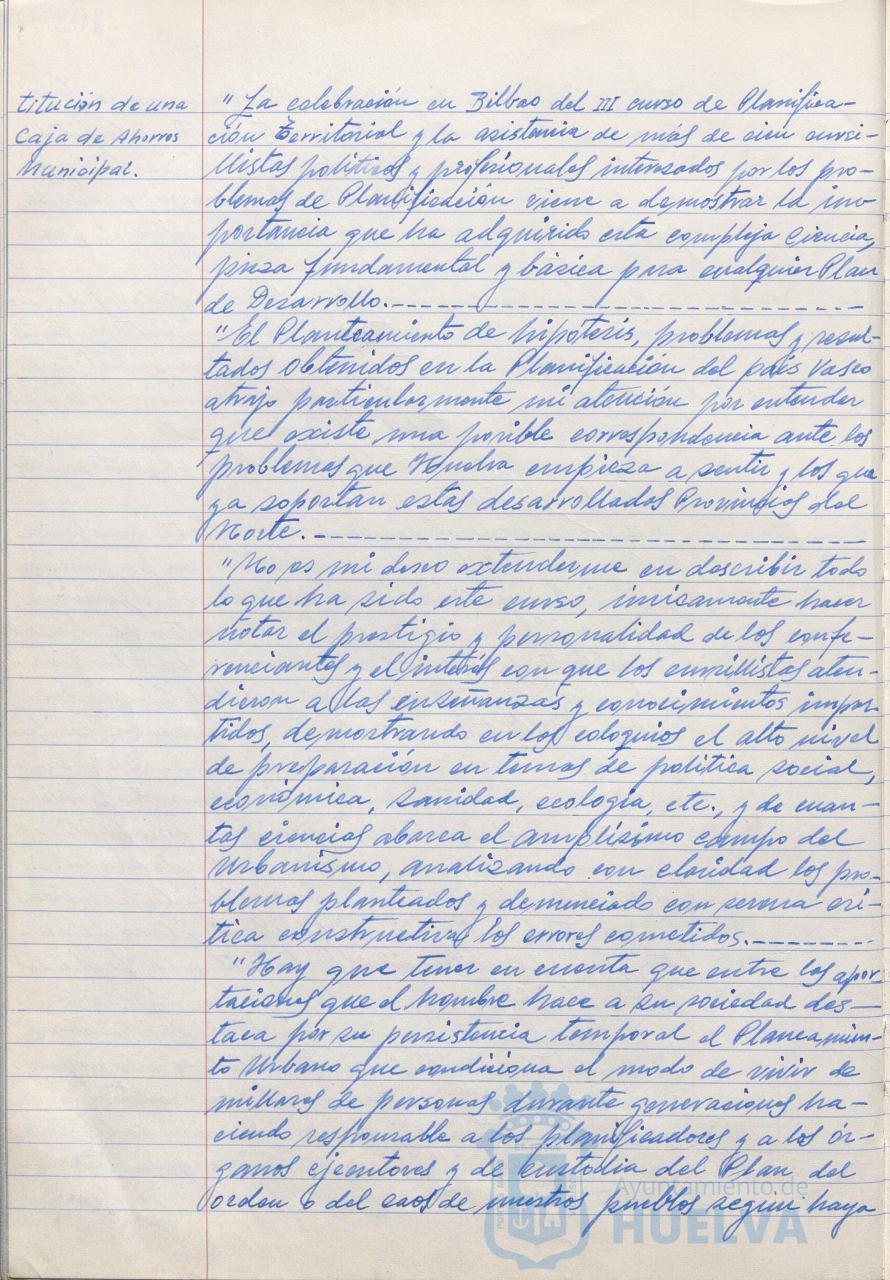 titución de una
Caja de Ahorros
Municipal.
"La celebración en Bilbao del III curso de Planifica-
ción Territorial y la asistencia de más de cien cursi-
llistas políticos y profesionales interesados por los pro-
blemas de Planificación viene a demostrar la im-
portancia que ha adquirido esta compleja Ciencia,
pieza fundamental y básica para cualquier Plan
de Desarrollo.-
"El Planteamiento de hipótesis, problemas y resul-
tados obtenidos en la Planificación del país Vasco
atrajo particularmente mi atención por entender
que existe una posible correspondencia ante los
problemas que Huelva empieza a sentir y los que
ya soportan estas desarrolladas Provincias del
Norte.-
"No es mi deseo extenderme en describir todo
lo que ha sido este curso, únicamente hacer
notar el prestigio y personalidad de los confe-
renciantes y el interés con que los cursillistas aten-
dieron a las enseñanzas y conocimientos impar-
tidos, demostrando en los coloquios el alto nivel
de preparación en temas de política social,
económica, sanidad, ecología, etc., y de cuan-
tas ciencias abarca el amplísimo campo del
Urbanismo, analizando con claridad los pro-
blemas planteados y denunciado con serena crí-
tica constructiva, los errores cometidos.-
"Hay que tener en cuenta que entre las apor-
taciones que el hombre hace a su sociedad des-
taca por su persistencia temporal el Planeamien-
to Urbano que condiciona el modo de vivir de
millares de personas durante generaciones ha-
ciendo responsable a los planificadores y a los ór-
ganos ejecutores y de custodia del Plan del
orden o del caos de nuestros pueblos según haya
Ayuntamiento de
HUELVA